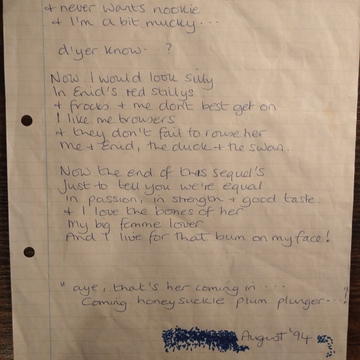 + never wants nookie
+ I'm a bit mucky...
d'yer know. ?
Now I would look silly
In Enid's red stillys
+ frocks + me don't best get on
I like me trousers
+ they don't fail to rouse her
me + Enid, the duck + the swan.
Now the end of this sequel's
Just to tell you we're equal
in passion, in strength + good taste.
+ I love the bones of her
My big femme lover
And I live for that bum on my face!
"aye, that's her coming in ...
Coming honeysuckle plum plunger...!
August '94